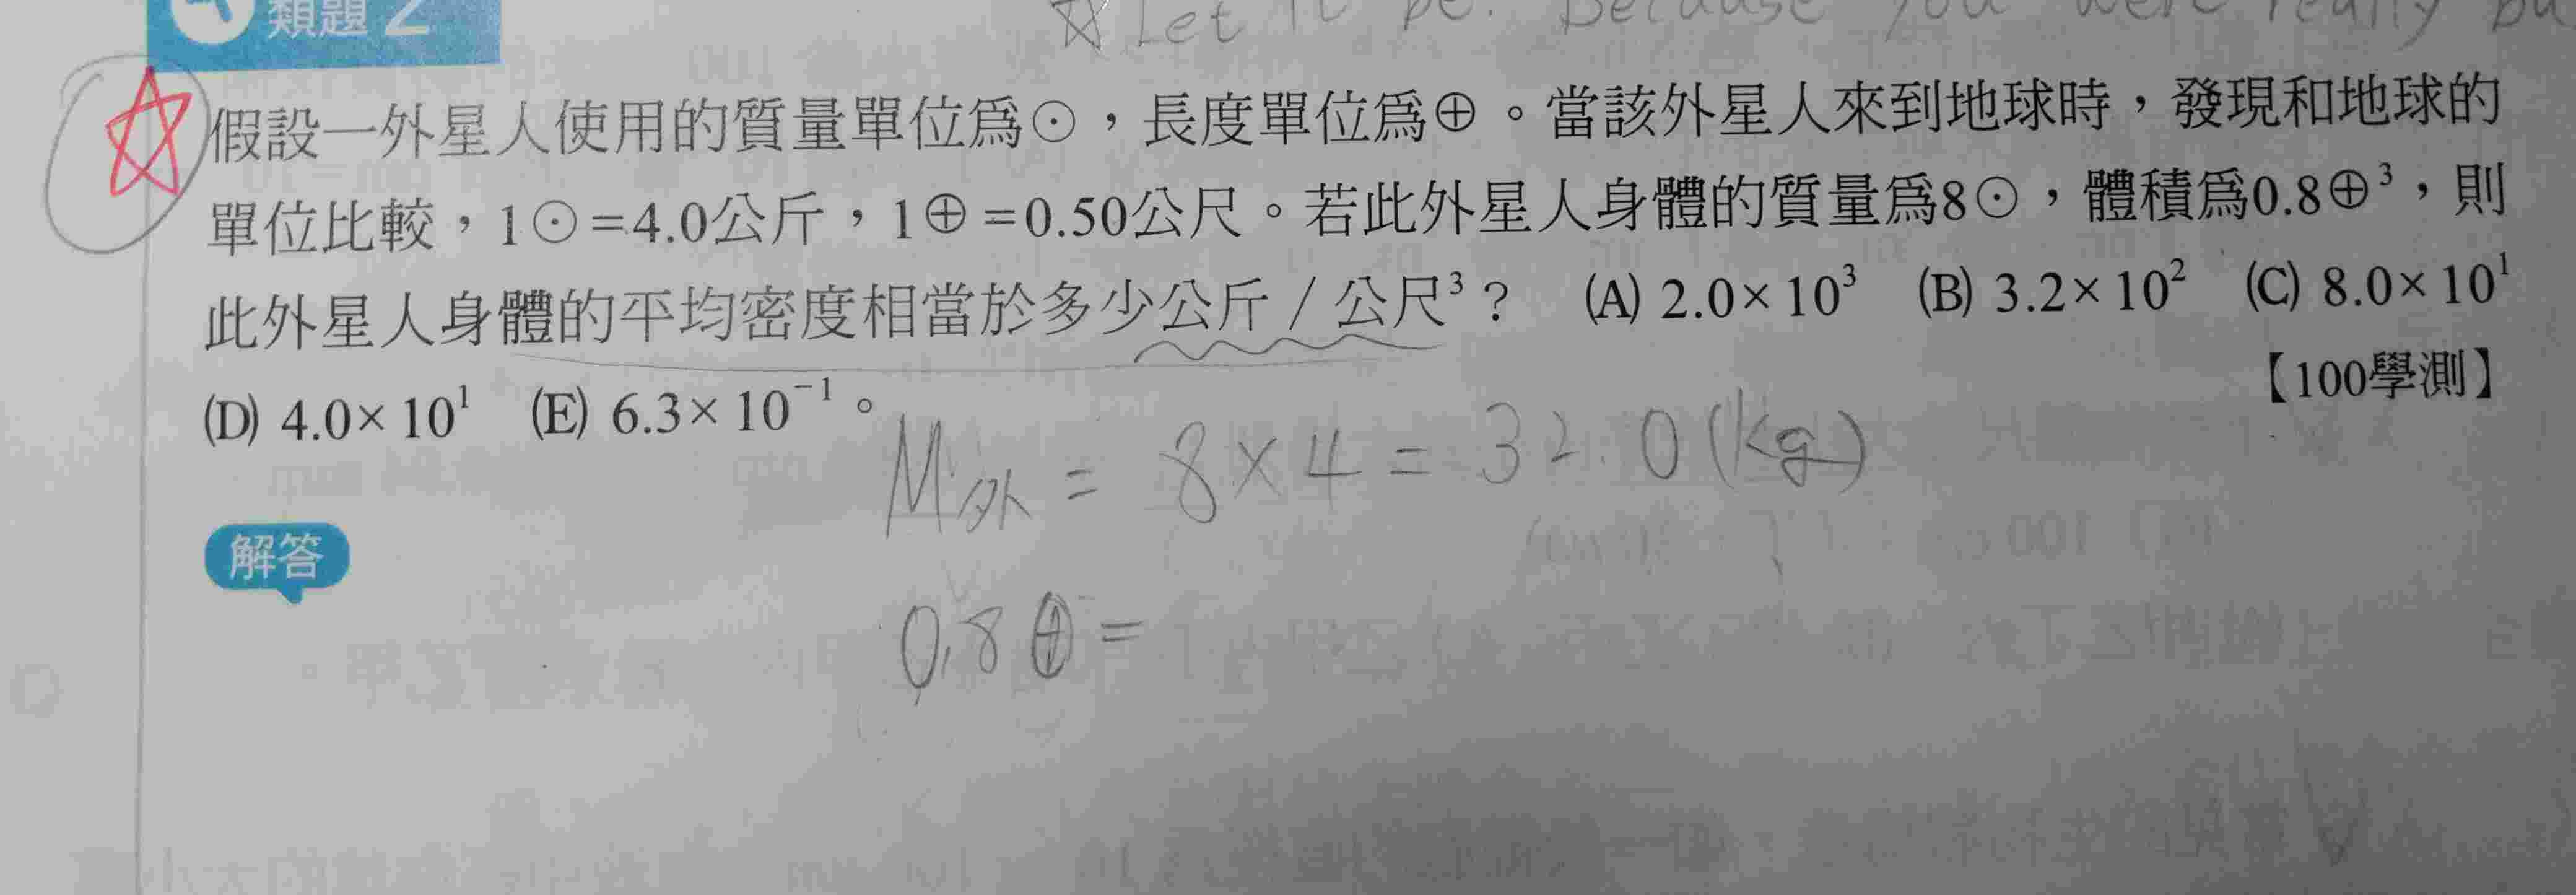 類題 2
☆ Let it be. Because you were really
假設一外星人使用的質量單位爲⊙，長度單位爲⊕。當該外星人來到地球時，發現和地球的
單位比較，1⊙=4.0公斤，1⊕=0.50公尺。若此外星人身體的質量爲8⊙，體積爲0.8⊕³，則
此外星人身體的平均密度相當於多少公斤／公尺³？ (A) 2.0×10³ (B) 3.2×10² (C) 8.0×10¹
(D) 4.0×10¹ (E) 6.3×10⁻¹。 【100學測】
M外 = 8×4 = 32.0(kg)
解答
0.8⊕=